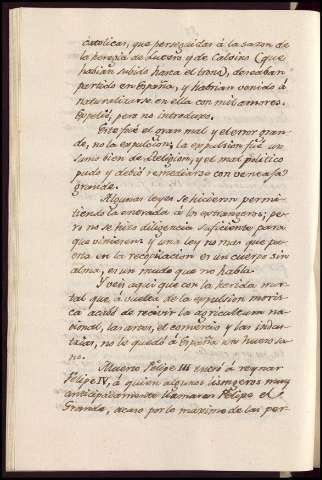 catolicas, que perseguidas á la sazon de
la heregia de Lutero y de Calvino (que
habian subido hasta el trono), deseaban
partido en España, y habrian venido á
naturalizarse en ella con mil amores.
Expelió, pero no introduxo.
Este fué el gran mal y el error gran-
de, no la expulsion; la expulsion fué un
sumo bien de Religion, y el mal politico
pudo y debió remediarse con ventaja
grande.
Algunas leyes se hicieron permi-
tiendo la entrada á los extrangeros; pe-
ro no se hizo diligencia suficiente para
que viniesen; y una ley no mas que pu-
esta en la recopilacion es un cuerpo sin
alma, es un mudo que no habla.
Y veis aqui que con la herida mor-
tal que á vuelta de la expulsion moris-
ca acabó de recivir la agricultura na-
cional, las artes, el comercio y las indus-
trias, no le quedó á España un hueso sa-
no.
Muerto Felipe III entró á reynar
Felipe IV, á quien algunos lisongeros muy
anticipadamente llamaron Felipe el
Grande, acaso por lo máximo de las per-